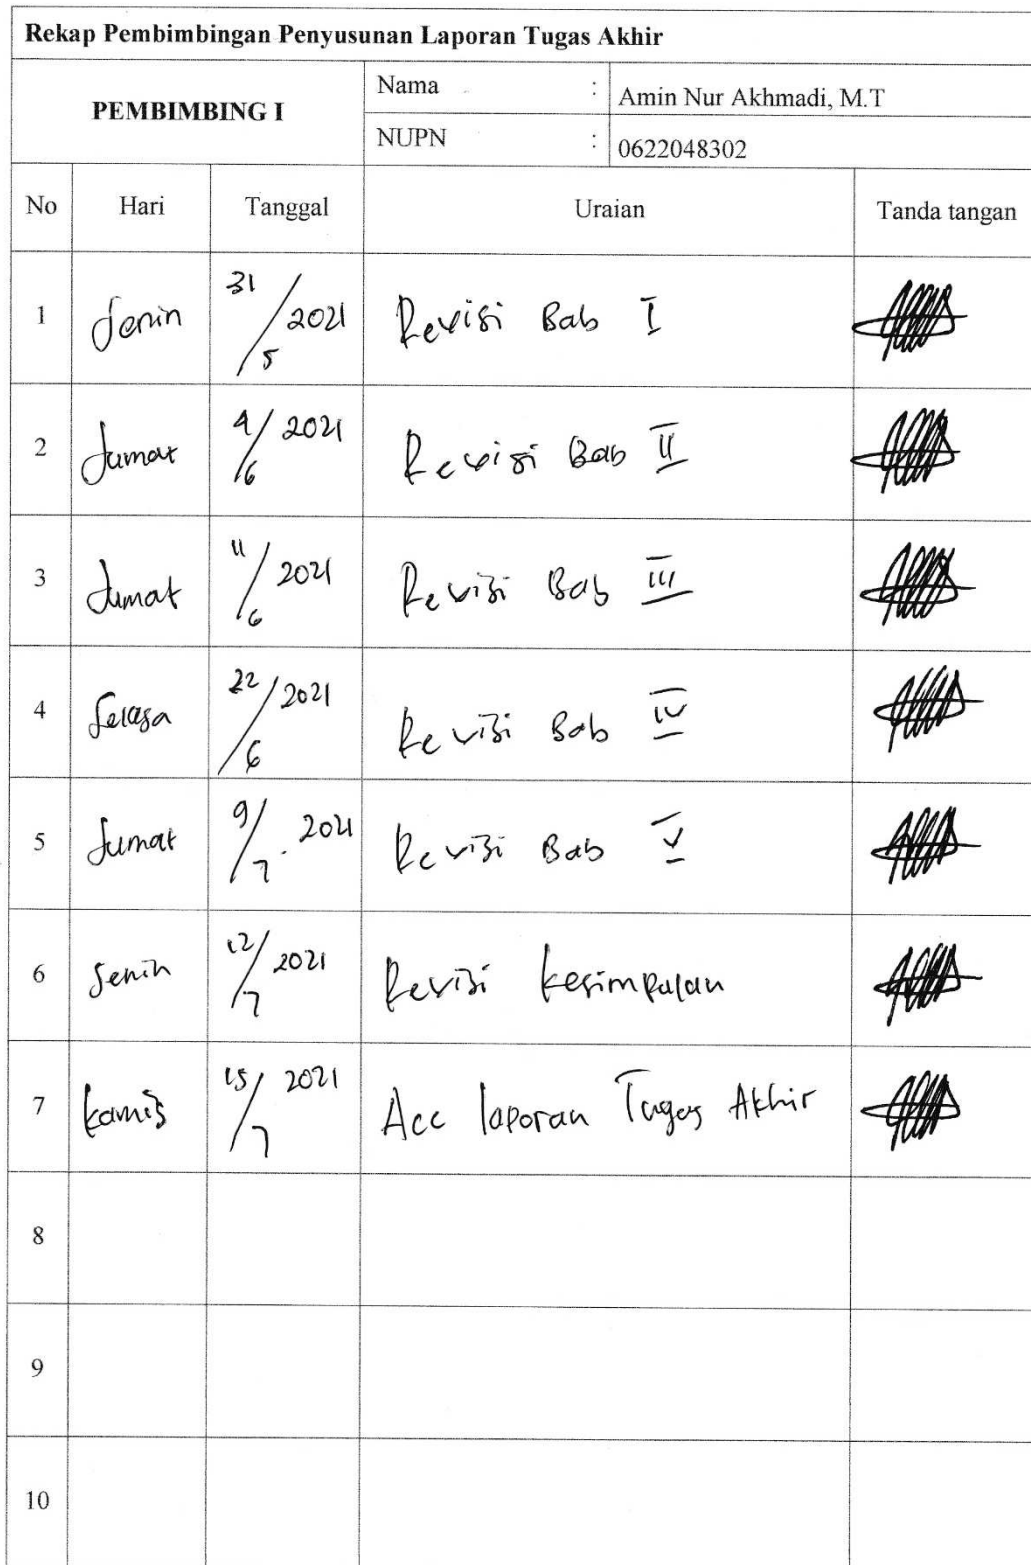 Rekap Pembimbingan Penyusunan Laporan Tugas Akhir
PEMBIMBING I
Nama : Amin Nur Akhmadi, M.T
NUPN : 0622048302
No Hari Tanggal Uraian Tanda tangan
1 Senin 31/5 2021 Revisi Bab I
2 Jumat 4/6 2021 Revisi Bab II
3 Jumat 11/6 2021 Revisi Bab III
4 Selasa 22/6 2021 Revisi Bab IV
5 Jumat 9/7. 2021 Revisi Bab V
6 Senin 12/7 2021 Revisi kesimpulan
7 kamis 15/7 2021 Acc laporan Tugas Akhir
8
9
10